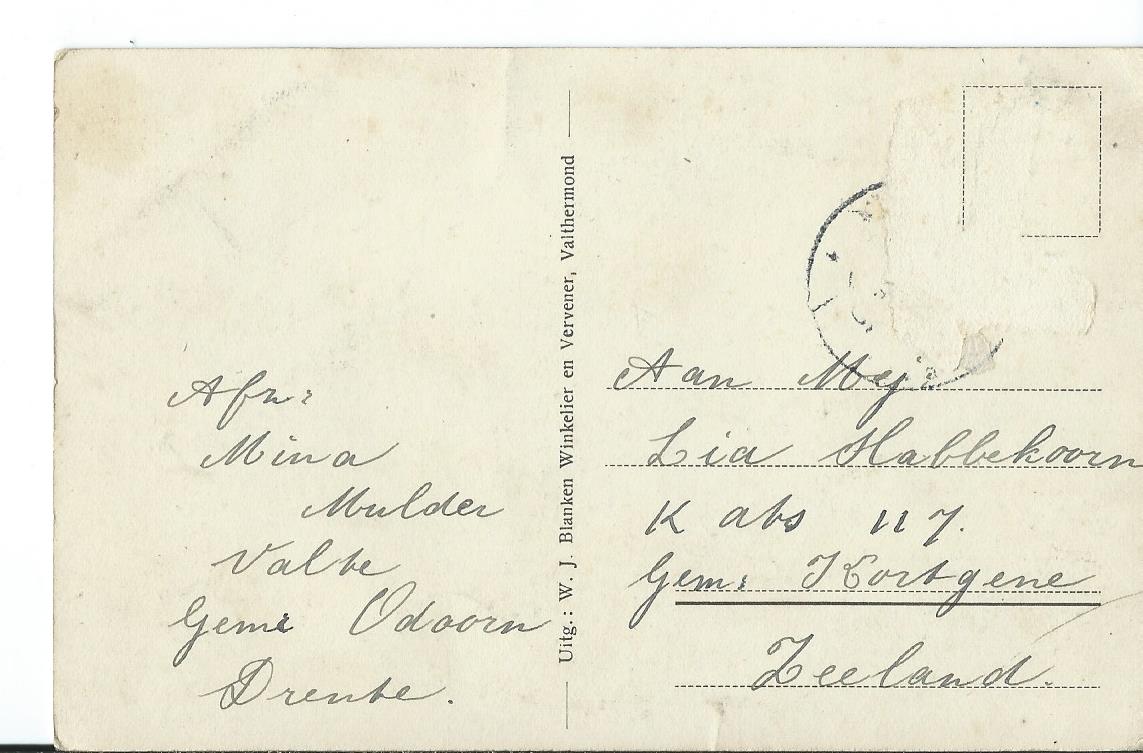 Afz:
Mina
Mulder
Valte
Gem: Odoorn
Drente.
Uitg.: W. J. Blanken Winkelier en Vervener, Valthermond
Aan Mej.
Lia Habbekoorn
Kats 117.
Gem: Kortgene
Zeeland.